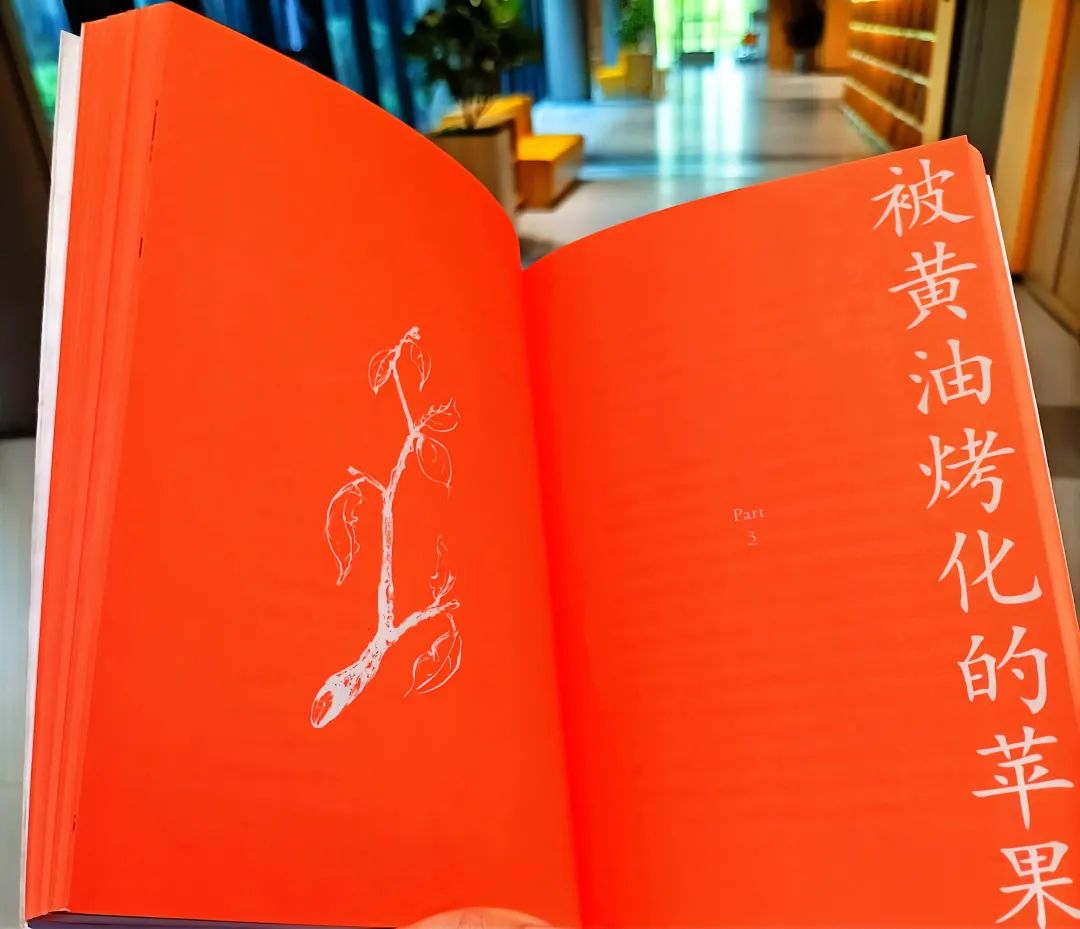 被黄油烤化的苹果
Part
3